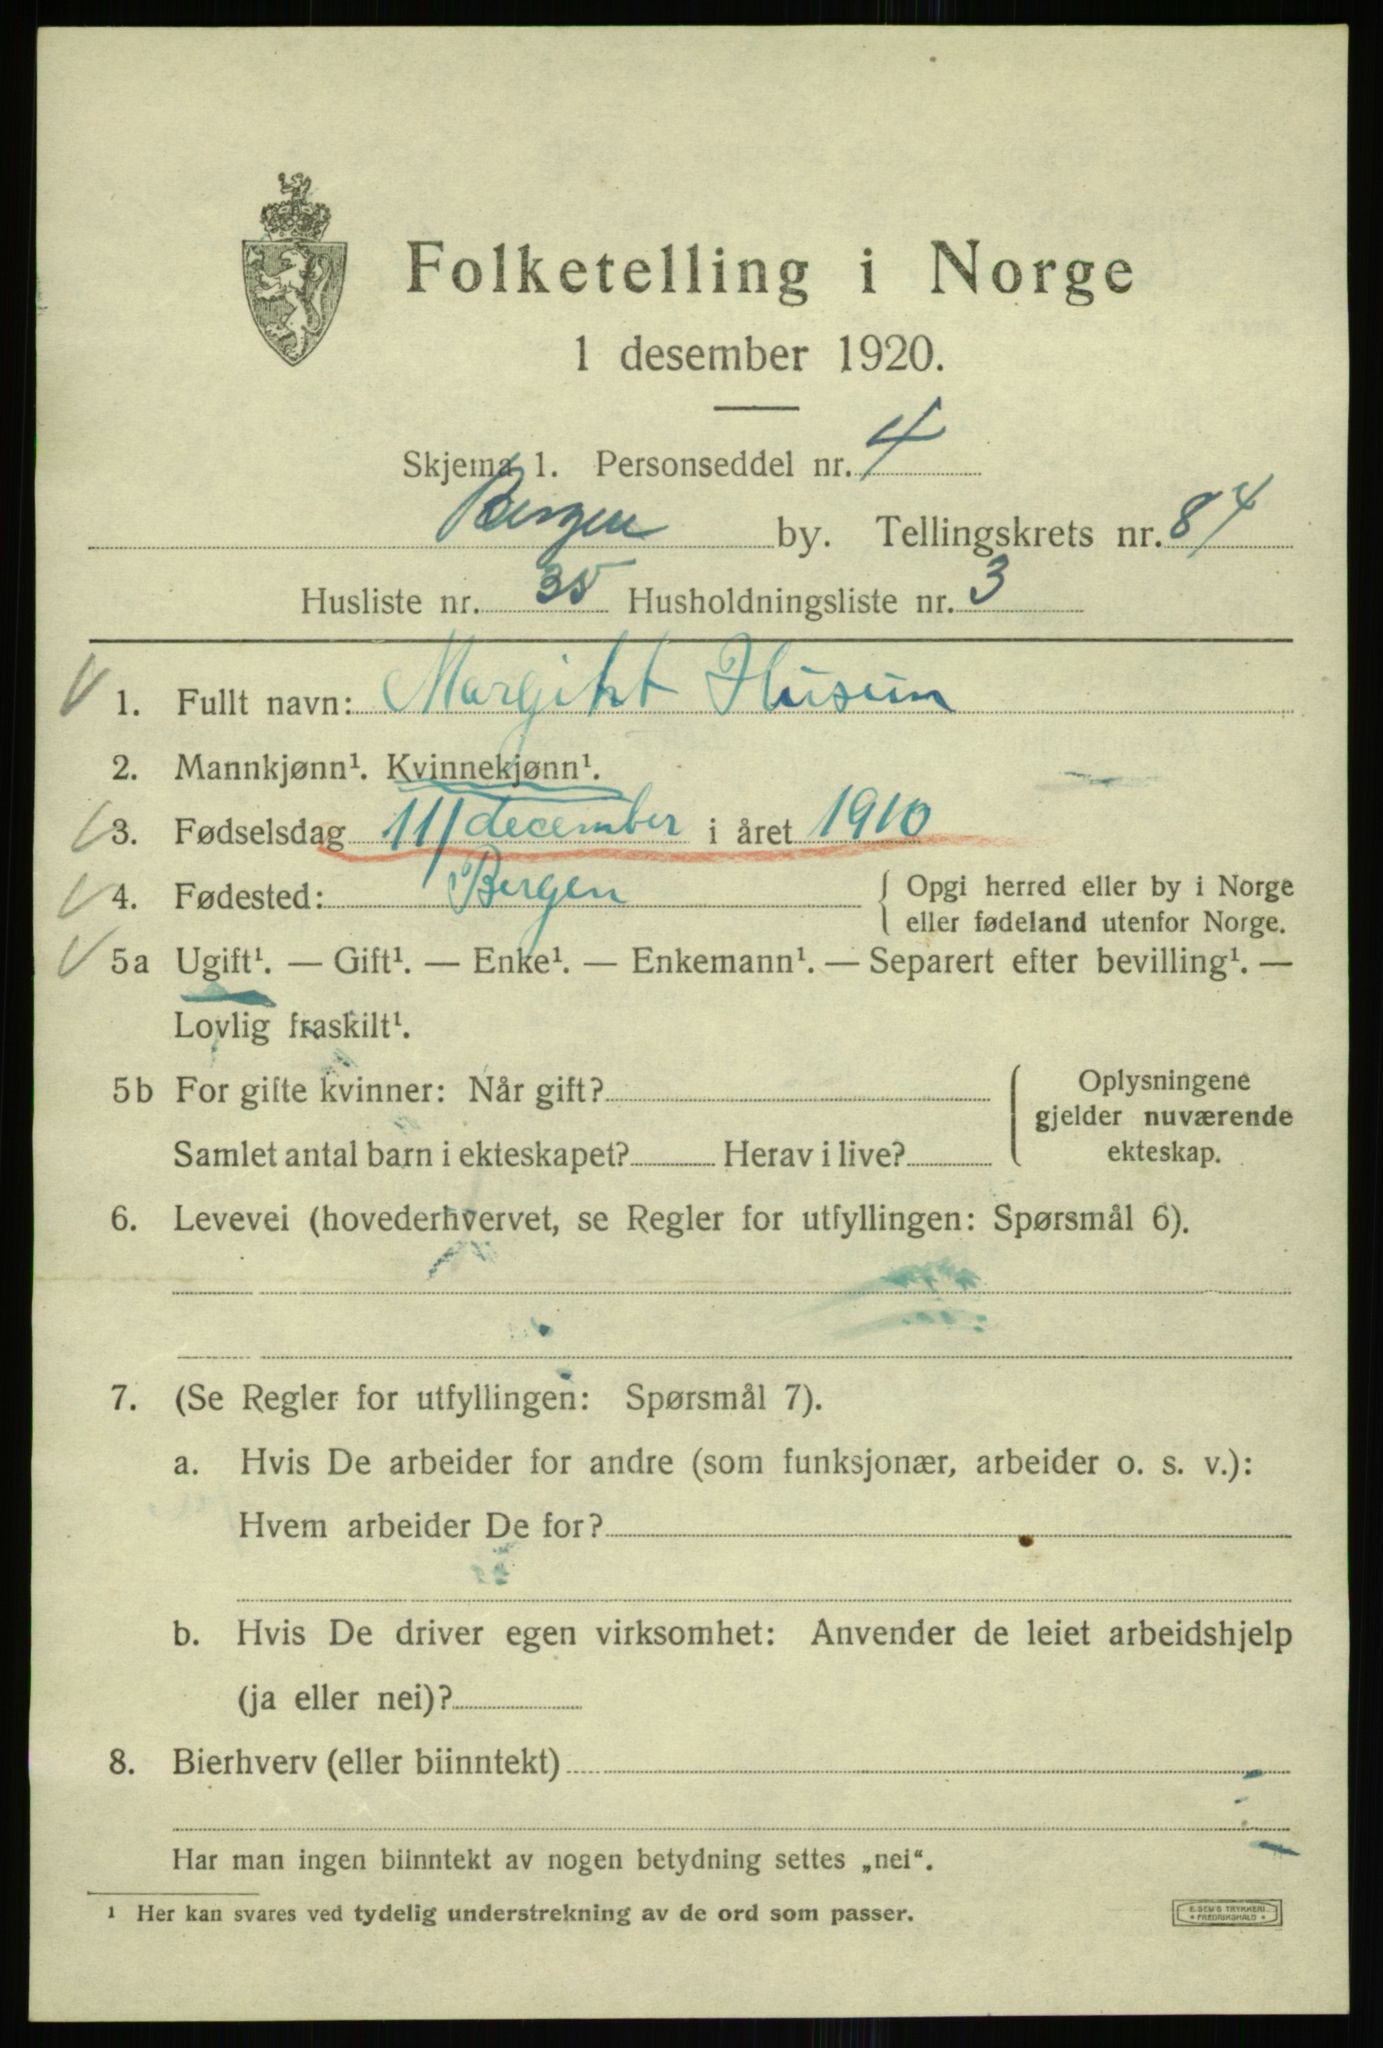 Folketelling i Norge
1 desember 1920.
Skjema 1. Personseddel nr. 4
Bergen by. Tellingskrets nr. 84
Husliste nr. 35 Husholdningsliste nr. 3
1. Fullt navn: Margikt Husum
2. Mannkjønn¹. Kvinnekjønn¹.
3. Fødselsdag 11/ december i året 1910
4. Fødested: Bergen { Opgi herred eller by i Norge
eller fødeland utenfor Norge.
5a Ugift¹. — Gift¹. — Enke¹. — Enkemann¹. — Separert efter bevilling¹. —
Lovlig fraskilt¹.
5b For gifte kvinner: Når gift?
Samlet antal barn i ekteskapet? Herav i live?
Oplysningene
gjelder nuværende
ekteskap.
6. Levevei (hovederhvervet, se Regler for utfyllingen: Spørsmål 6).
7. (Se Regler for utfyllingen: Spørsmål 7).
a. Hvis De arbeider for andre (som funksjonær, arbeider o. s. v.):
Hvem arbeider De for?
b. Hvis De driver egen virksomhet: Anvender de leiet arbeidshjelp
(ja eller nei)?
8. Bierhverv (eller biinntekt)
Har man ingen biinntekt av nogen betydning settes „nei“.
¹ Her kan svares ved tydelig understrekning av de ord som passer.
E. SEM'S TRYKKERI
* FREDRIKSHALD *